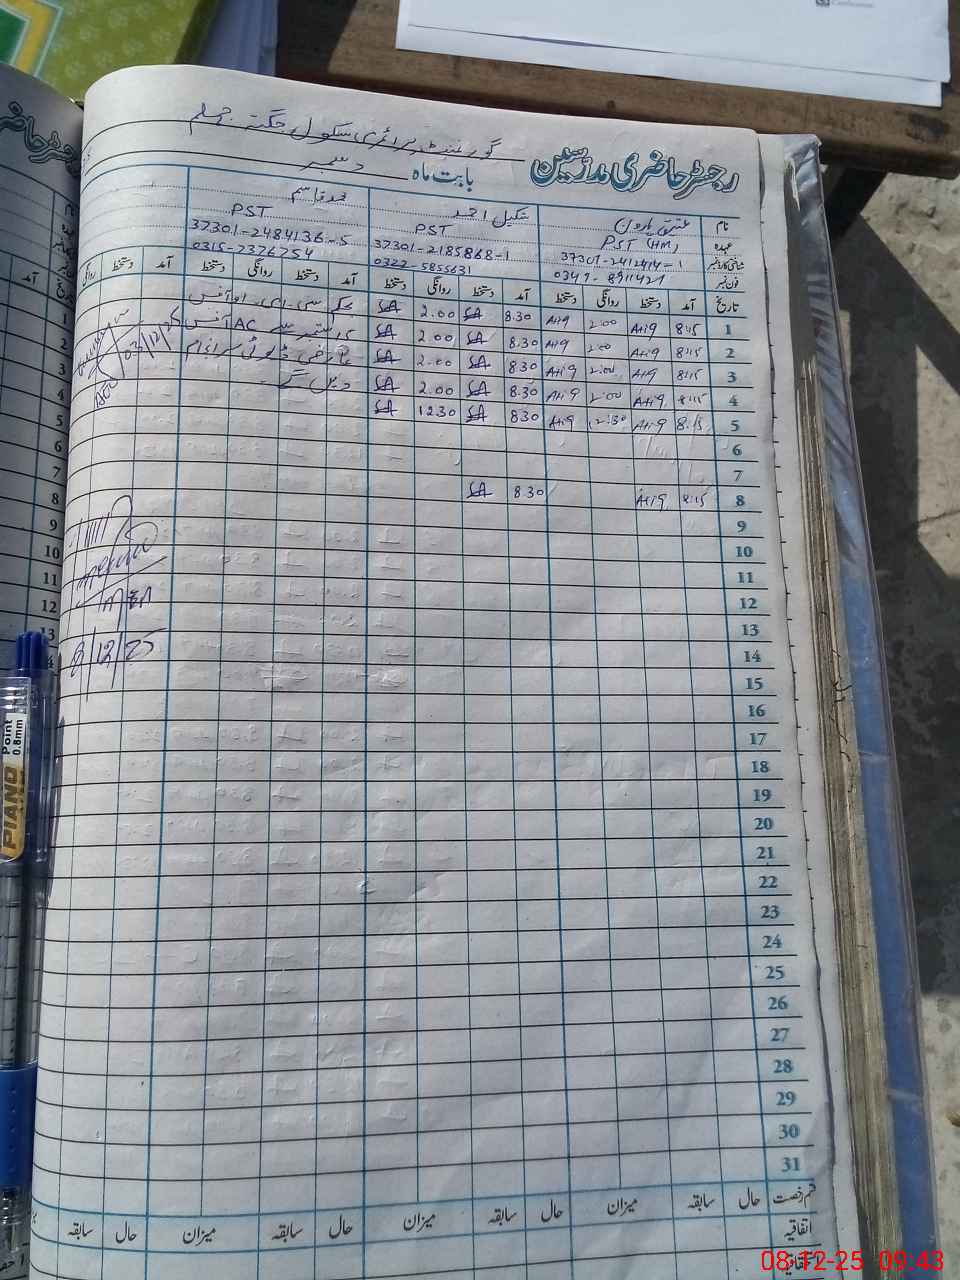 گورنمنٹ پرائمری سکول چکتہ جہلم
رجسٹر حاضری مدرسین
بابت ماہ دسمبر
نام عتیق ہارون شکیل احمد محمد قاسم
عہدہ PST (HM) PST PST
شناختی کارڈ نمبر 37301-2412414-1 37301-2185868-1 37301-2484136-5
فون نمبر 0349-8911421 0322-5855631 0315-2326754
تاریخ آمد دستخط روانگی دستخط آمد دستخط روانگی دستخط آمد دستخط روانگی دستخط آمد دستخط روانگی
1 8:15 Atiq 2:00 Atiq 8.30 SA 2.00 SA
2 8:15 Atiq 2:00 Atiq 8.30 SA 2.00 SA
3 8:15 Atiq 2:00 Atiq 8.30 SA 2.00 SA
4 8:15 Atiq 2:00 Atiq 8.30 SA 2.00 SA
5 8:15 Atiq 12:30 Atiq 8.30 SA 12.30 SA
6
7
8 8:15 Atiq 8.30 SA
9
10
11
12
13
14
15
16
17
18
19
20
21
22
23
24
25
26
27
28
29
30
31
03/12/25
MEA
8/12/25
قسم رخصت حال سابقہ میزان حال سابقہ میزان حال سابقہ میزان حال سابقہ
اتفاقیہ
PIANO
Point
0.8mm
08-12-25 09:43